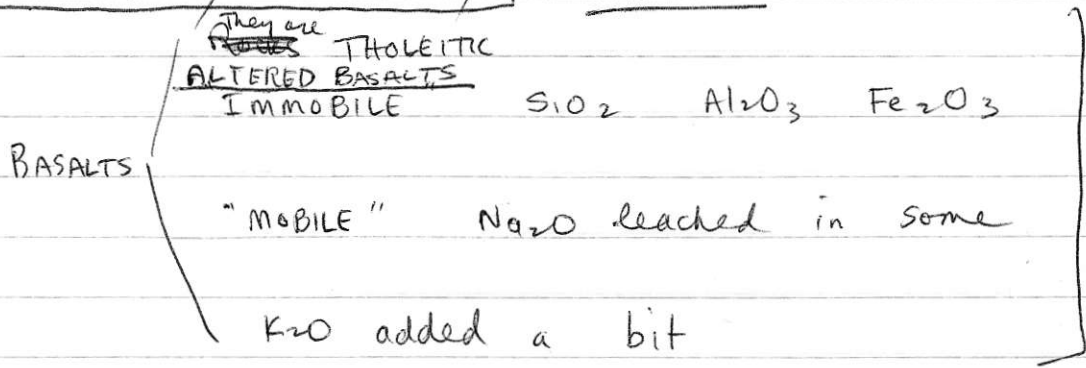 They are
THOLEIITIC
ALTERED BASALTS
IMMOBILE SiO2 Al2O3 Fe2O3
BASALTS
"MOBILE" Na2O leached in some
K2O added a bit